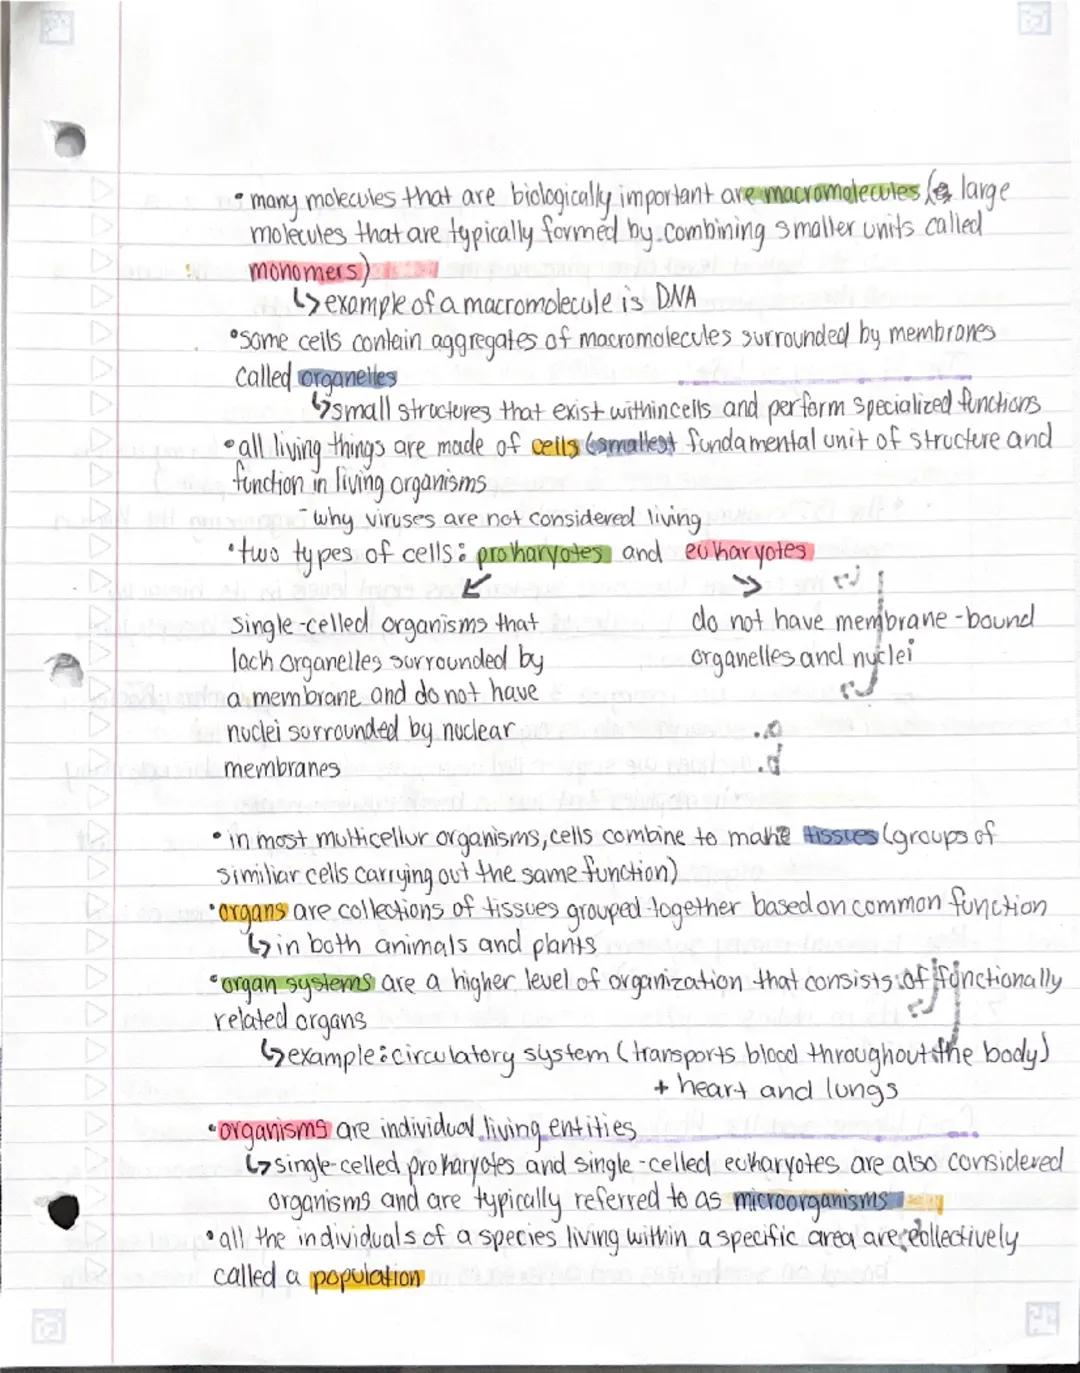 • many molecules that are biologically important are macromolecules ( large
molecules that are typically formed by combining smaller units called
monomers)
↳ example of a macromolecule is DNA
• some cells contain aggregates of macromolecules surrounded by membranes
called organelles
↳ small structures that exist within cells and perform specialized functions
• all living things are made of cells (smallest fundamental unit of structure and
function in living organisms
- why viruses are not considered living
• two types of cells: prokaryotes and eukaryotes
↙ ↘
single-celled organisms that
lack organelles surrounded by
a membrane and do not have
nuclei surrounded by nuclear
membranes
do not have membrane-bound
organelles and nuclei
• in most multicellur organisms, cells combine to make tissues (groups of
similiar cells carrying out the same function)
• organs are collections of tissues grouped together based on common function
↳ in both animals and plants
• organ systems are a higher level of organization that consists of functionally
related organs
↳ example: circulatory system (transports blood throughout the body)
+ heart and lungs
• organisms are individual living entities
↳ single-celled prokaryotes and single-celled eukaryotes are also considered
organisms and are typically referred to as microorganisms
• all the individuals of a species living within a specific area are collectively
called a population